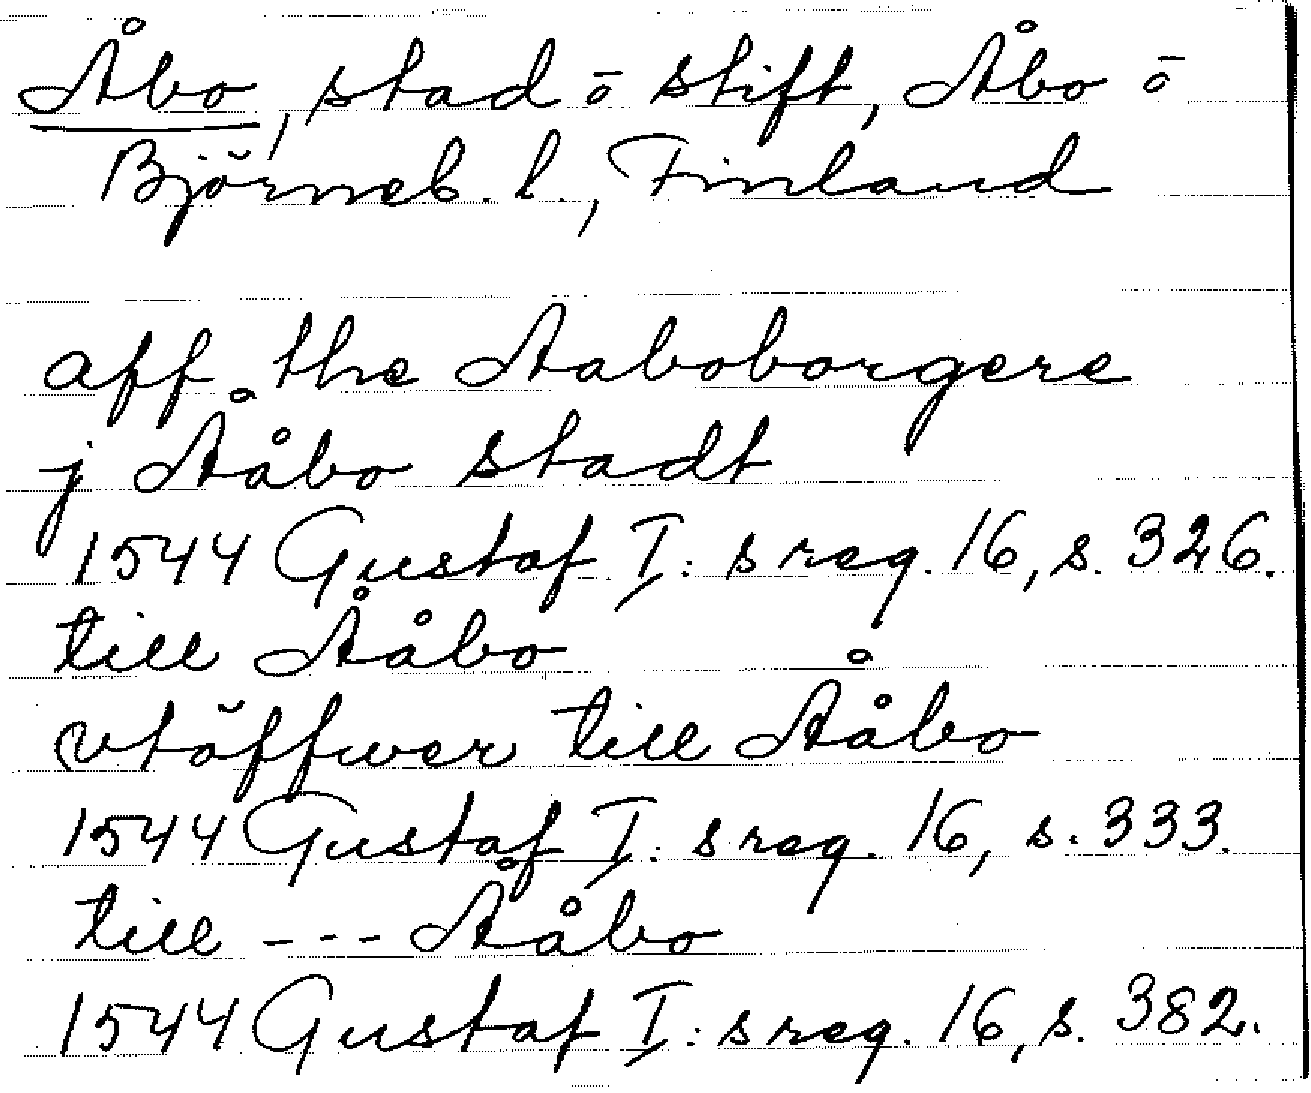 Åbo, stad o stift, Åbo o
Björneb. l., Finland
aff the Aaboborgere
j Ååbo stadt
1544 Gustaf I: s reg. 16, s. 326.
till Ååbo
vtöffwer till Ååbo
1544 Gustaf I: s reg. 16, s. 333.
till --- Ååbo
1544 Gustaf I: s reg. 16, s. 382.